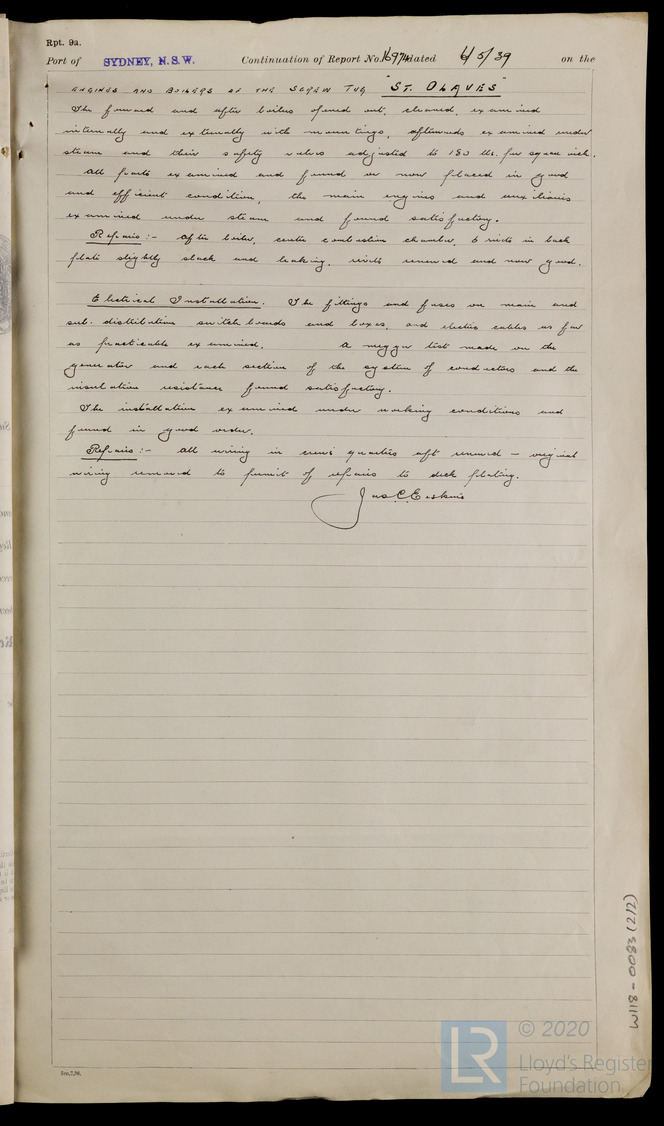 Rpt. 9a.
Port of SYDNEY, N.S.W. Continuation of Report No. 16974 dated 6/5/39 on the
ENGINES AND BOILERS OF THE SCREW TUG "ST. OLAVES"
The forward and after boilers opened out, cleaned, examined
internally and externally with mountings, afterwards examined under
steam and their safety valves adjusted to 180 lbs. per square inch.
All parts examined and found or now placed in good
and efficient condition, the main engines and auxiliaries
examined under steam and found satisfactory.
Repairs:- After boiler, centre combustion chamber, 6 rivets in back
plate slightly slack and leaking, rivets renewed and now good.
Electrical Installation. The fittings and fuses on main and
sub. distribution switch boards and boxes, and electric cables as far
as practicable examined. A megger test made on the
generator and each section of the system of conductors and the
insulation resistance found satisfactory.
The installation examined under working conditions and
found in good order.
Repairs:- All wiring in crew's quarters aft renewed - original
wiring removed to permit of repairs to deck plating.
Jas C. Erskine
5m,7,36.
W118-0083 (2/2)
LR
© 2020
Lloyd's Register
Foundation